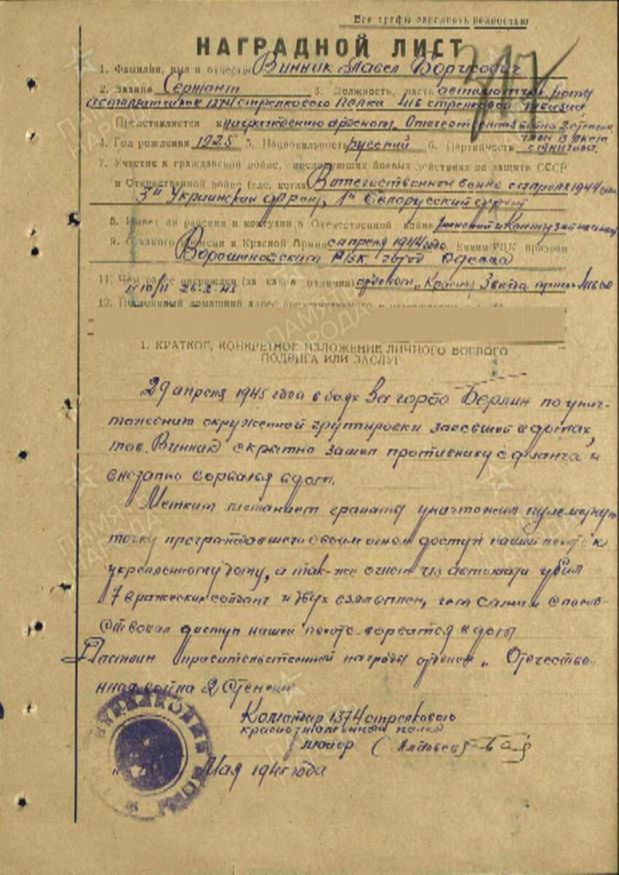 Все графы заполнять полностью
НАГРАДНОЙ ЛИСТ
1. Фамилия, имя и отчество Винник Павел Борисович
2. Звание Сержант 3. Должность, часть автоматчик роты
автоматчиков 1374 стрелкового полка 416 стрелковой дивизии
Представляется к награждению орденом Отечественная война 2 степени
4. Год рождения 1925 5. Национальность русский 6. Партийность
7. Участие в гражданской войне, последующих боевых действиях по защите СССР
и Отечественной войне (где, когда) В отечественной войне с апреля 1944 года
3й Украинский фронт, 1й Белорусский фронт
8. Имеет ли ранения и контузии в Отечественной войне
9. С какого времени в Красной Армии с апреля 1944 года Каким РВК призван
Ворошиловским РВК город Одесса
11. Чем ранее награжден (за какие отличия) орденом "Красная Звезда"
12. Постоянный домашний адрес
1. КРАТКОЕ, КОНКРЕТНОЕ ИЗЛОЖЕНИЕ ЛИЧНОГО БОЕВОГО
ПОДВИГА ИЛИ ЗАСЛУГ
29 апреля 1945 года в боях за город Берлин по унич-
тожению окруженной группировки засевшей в домах,
тов. Винник скрытно зашел противнику с фланга и
внезапно ворвался в дом.
Метким метанием гранаты уничтожил пулеметную
точку преграждавшей своим огнем доступ нашей пехоте к
укрепленному дому, а так-же огнем из автомата убил
7 вражеских солдат и двух взял в плен, чем самым способ-
ствовал доступ нашей пехоте ворватся в дом
Достоин правительственной награды орденом "Отечестве-
нная война 2 степени
Командир 1374 стрелкового
краснознаменного полка
майор
Мая 1945 года
ПАМЯТЬ
НАРОДА